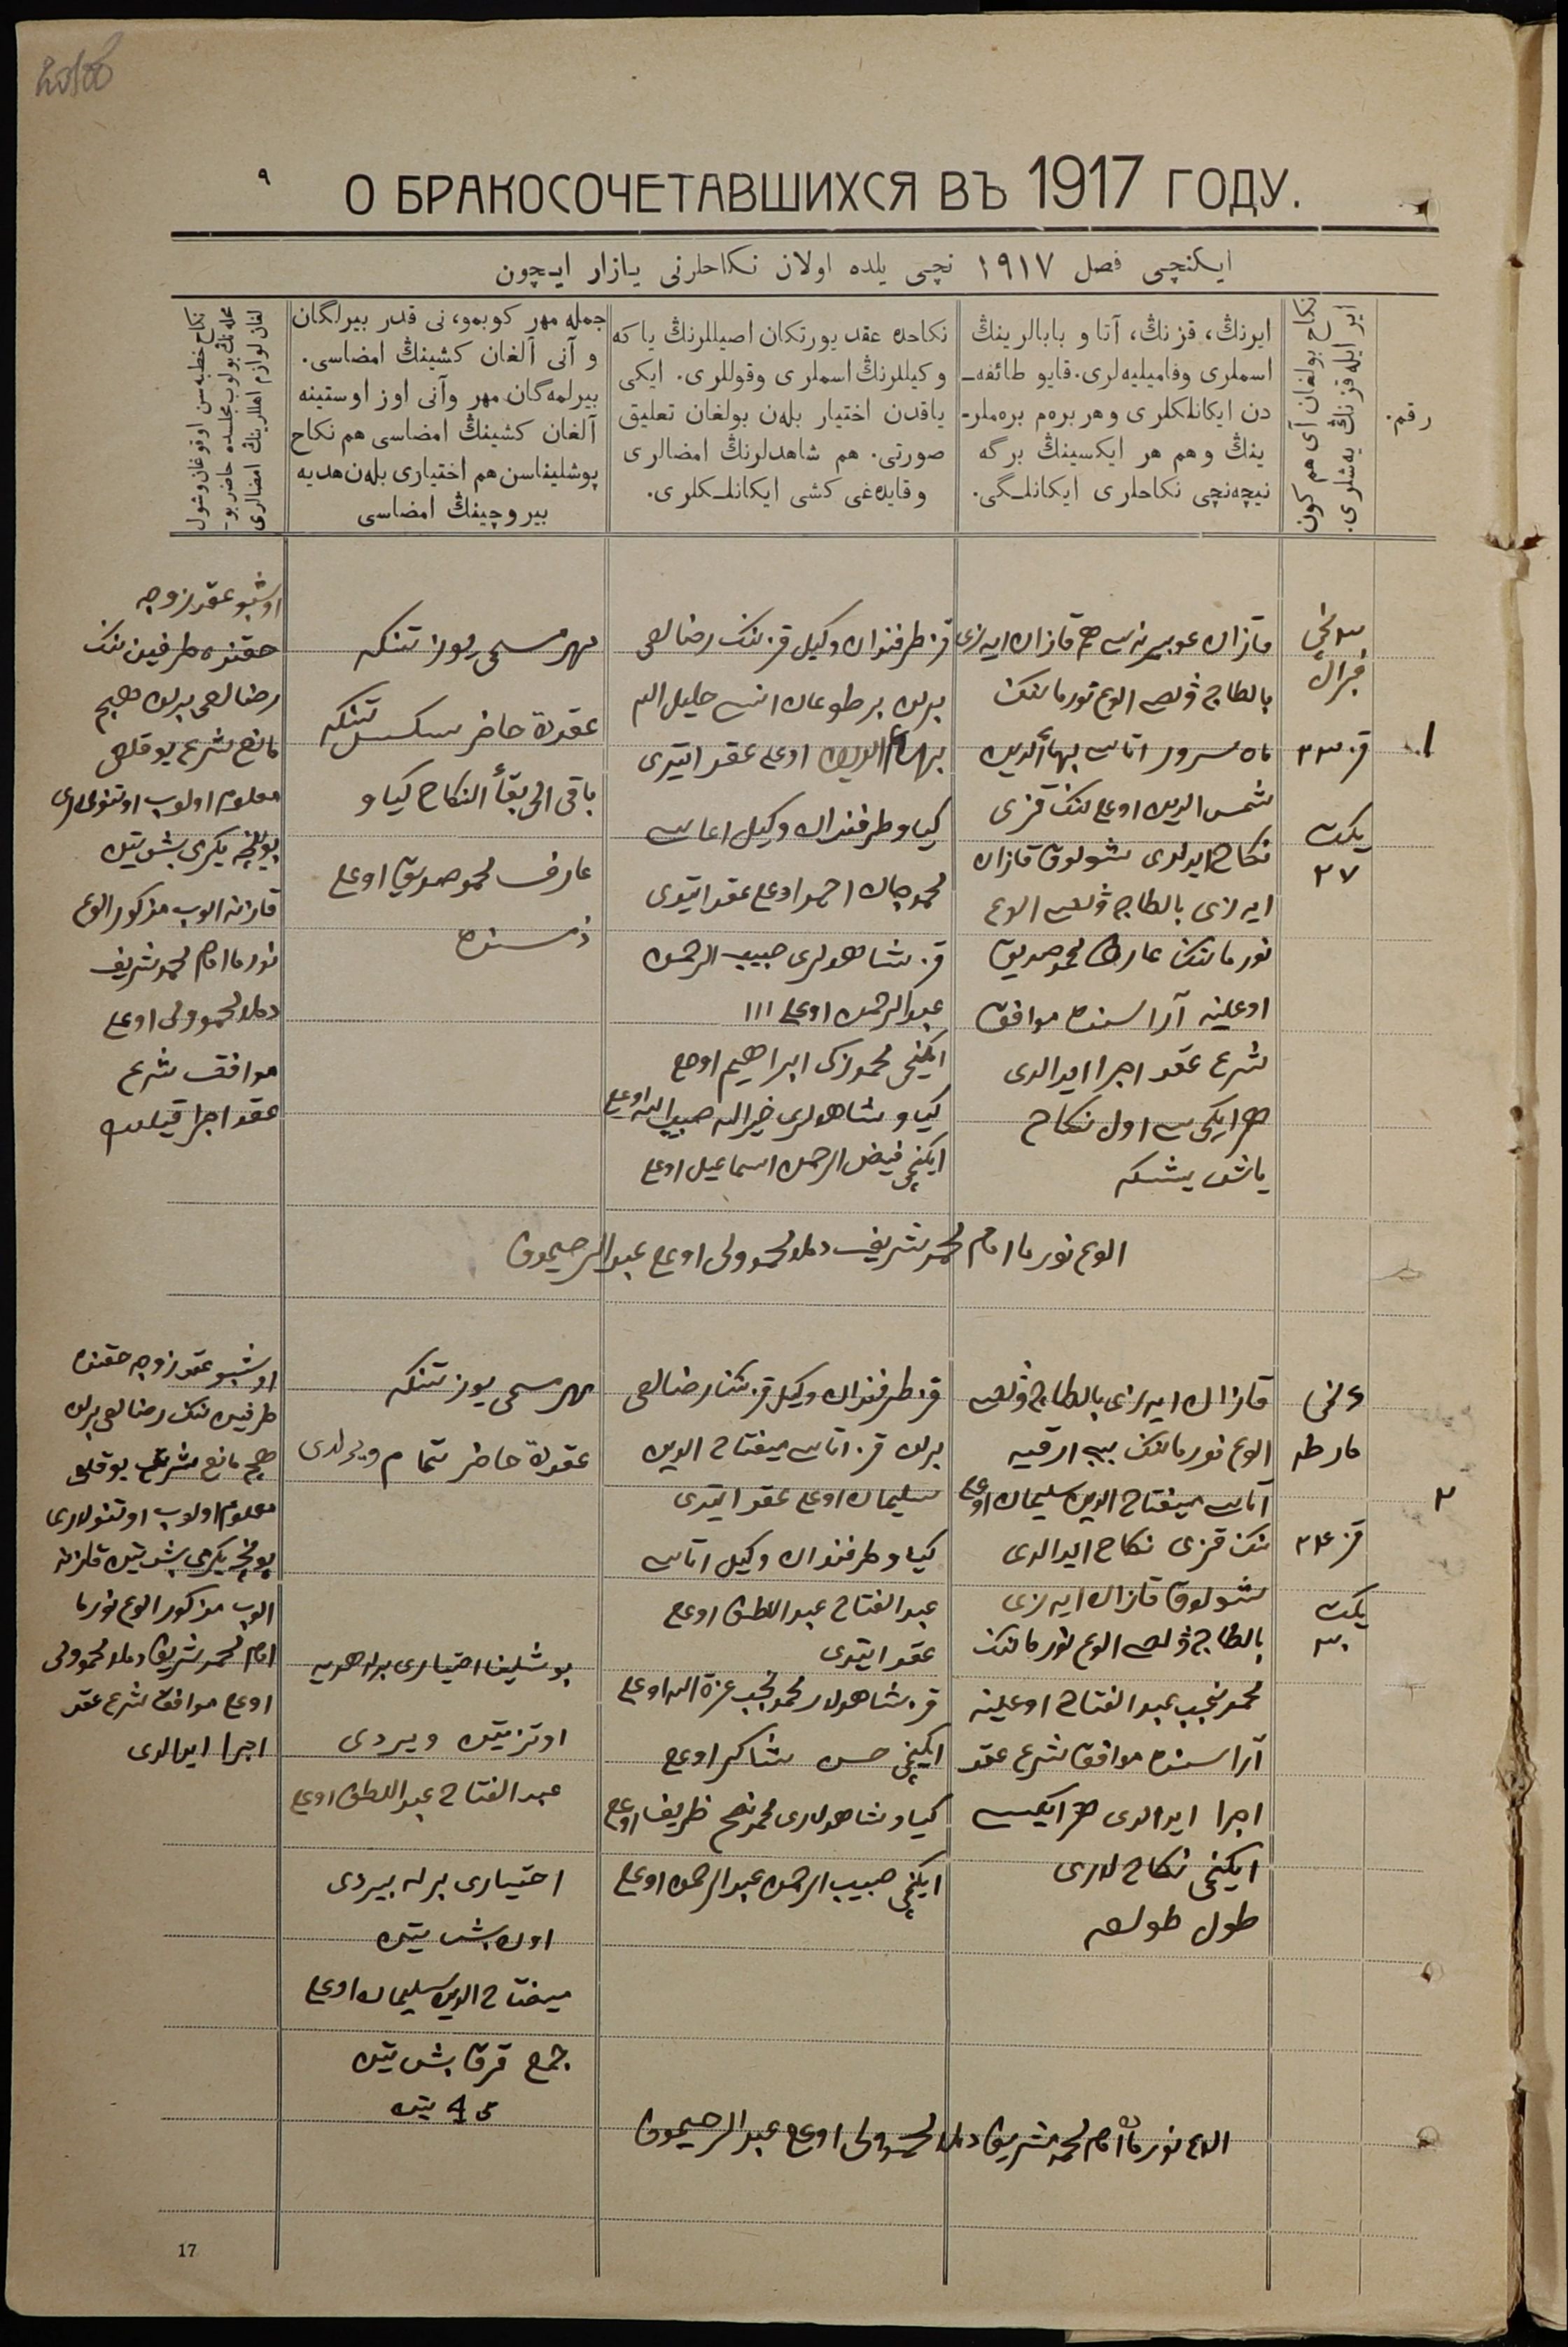 О БРАКОСОЧЕТАВШИХСЯ ВЪ 1917 ГОДУ.
٩
ایکنچی فصل ١٩١٧ نچی یلده اولان نکاحلرنی یازار ایچون
رقم.
نکاح بولغان آی هم کون
ایر ایله قزنڭ یەشلری.
ایرنڭ، قزنڭ، آتا و بابالرینڭ
اسملری وفامیلیه‌لری. قایو طائفه‌ـ
دن ایکانلکلری و هر برەم برەملرـ
ینڭ و هم هر ایکسینڭ برگه
نیچەنچی نکاحلری ایکانلـگی.
نکاحده عقد یورتکان اصیللرنڭ یاکه
وکیللرنڭ اسملری وقوللری. ایکی
یاقدن اختیار بلەن بولغان تعلیق
صورتی. هم شاهدلرنڭ امضالری
وقایدەغی کشی ایکانلـکلری.
جمله مهر کوبمو، نی قدر بیرلگان
و آنی آلغان کشینڭ امضاسی.
بیرلمەگان مهر وآنی اوز اوستینه
آلغان کشینڭ امضاسی هم نکاح
پوشلیناسن هم اختیاری بلەن هدیه
بیروچینڭ امضاسی
نکاح خطبه‌سن اوقوغان وشول
محله‌نڭ بولوب مجلسده حاضر بوـ
لغان لوازم اهللرینڭ امضالری
١
فبرال
قز ٢٣
یکت
٢٧
بالطاچ ڤولصی الوغ نورمانڭ
ماه سرور اتاسی بهاءالدین
شمس الدین اوغلی ننڭ قزی
نکاح ایدلدی شولوق قازان
ایه‌زی بالطاچ ڤولصی الوغ
نورمانڭ عارف محمدصدیق
اوغلینه آراسنده موافق
شرع عقد اجرا ایدالدی
هر ایکی سی اول نکاح
یاش یشکه
قز طرفندان وکیل قزننڭ رضالغی
بهاءالدین اوغلی عقد ایتدی
کیاو طرفندان وکیل اغاسی
محمدجان احمد اوغلی عقد ایتدی
قز شاهدلری حبیب الرحمن
عبدالرحمن اوغلی
ایکنچی محمدزکی ابراهیم اوغلی
کیاو شاهدلری خیرالله حبیب الله اوغلی
ایکنچی فیض الرحمن اسماعیل اوغلی
مهر مسمی یوز تنکه
عقدده حاضر سکسن تنکه
باقی الی بقاء النکاح کیاو
عارف محمدصدیق اوغلی
ذمسنده
اوشبو عقد زوجه
حقنده طرفین ننڭ
رضالغی برلن هیچ
مانع شرع یوقلغی
معلوم اولوب
یولنچه یکرمی بش تین
قازنه الوب مذکور الوغ
نورما امام محمدشریف
دملا محمدولی اوغلی
موافق شرع
عقد اجرا قیلدم
الوغ نورما امام محمدشریف دملا محمدولی اوغلی عبدالرحیموف
٢
مارطه
قز ٢٤
یکت
٣٠
قازان ایه‌زی بالطاچ ڤولصی
الوغ نورمانڭ بیبی ارقیه
آتاسی میفتاح الدین سلیمان اوغلی
ننڭ قزی نکاح ایدالدی
شولوق قازان ایه‌زی
بالطاچ ڤولصی الوغ نورمانڭ
محمدنجیب عبدالفتاح اوغلینه
آراسنده موافق شرع عقد
اجرا ایدالدی هر ایکسی
ایکنچی نکاحلاری
طول طولغه
قز طرفندان وکیل قزننڭ رضالغی
برلن قز اتاسی میفتاح الدین
سلیمان اوغلی عقد ایتدی
کیاو طرفندان وکیل اتاسی
عبدالفتاح عبداللطیف اوغلی
عقد ایتدی
قز شاهدلار محمدنجیب عزةالله اوغلی
ایکنچی حسن شاکر اوغلی
کیاو شاهدلاری محمدفتح ظریف اوغلی
ایکنچی حبیب الرحمن عبدالرحمن اوغلی
مهر مسمی یوز تنکه
عقدده حاضر تمام ویرلدی
پوشلینا اختیاری برله هدیه
اوتز تین ویردی
عبدالفتاح عبداللطیف اوغلی
اختیاری برله بیردی
اون بش تین
میفتاح الدین سلیمان اوغلی
جمع قرق بش تین
45 تین
اوشبو عقد زوجه حقنده
طرفین ننڭ رضالغی برلن
هیچ مانع شرعی یوقلغی
معلوم اولوب
یولنچه یکرمی بش تین قازنه
الوب مذکور الوغ نورما
امام محمدشریف دملا محمدولی
اوغلی موافق شرع عقد
اجرا ایدالدی
الوغ نورما امام محمدشریف دملا محمدولی اوغلی عبدالرحیموف
17